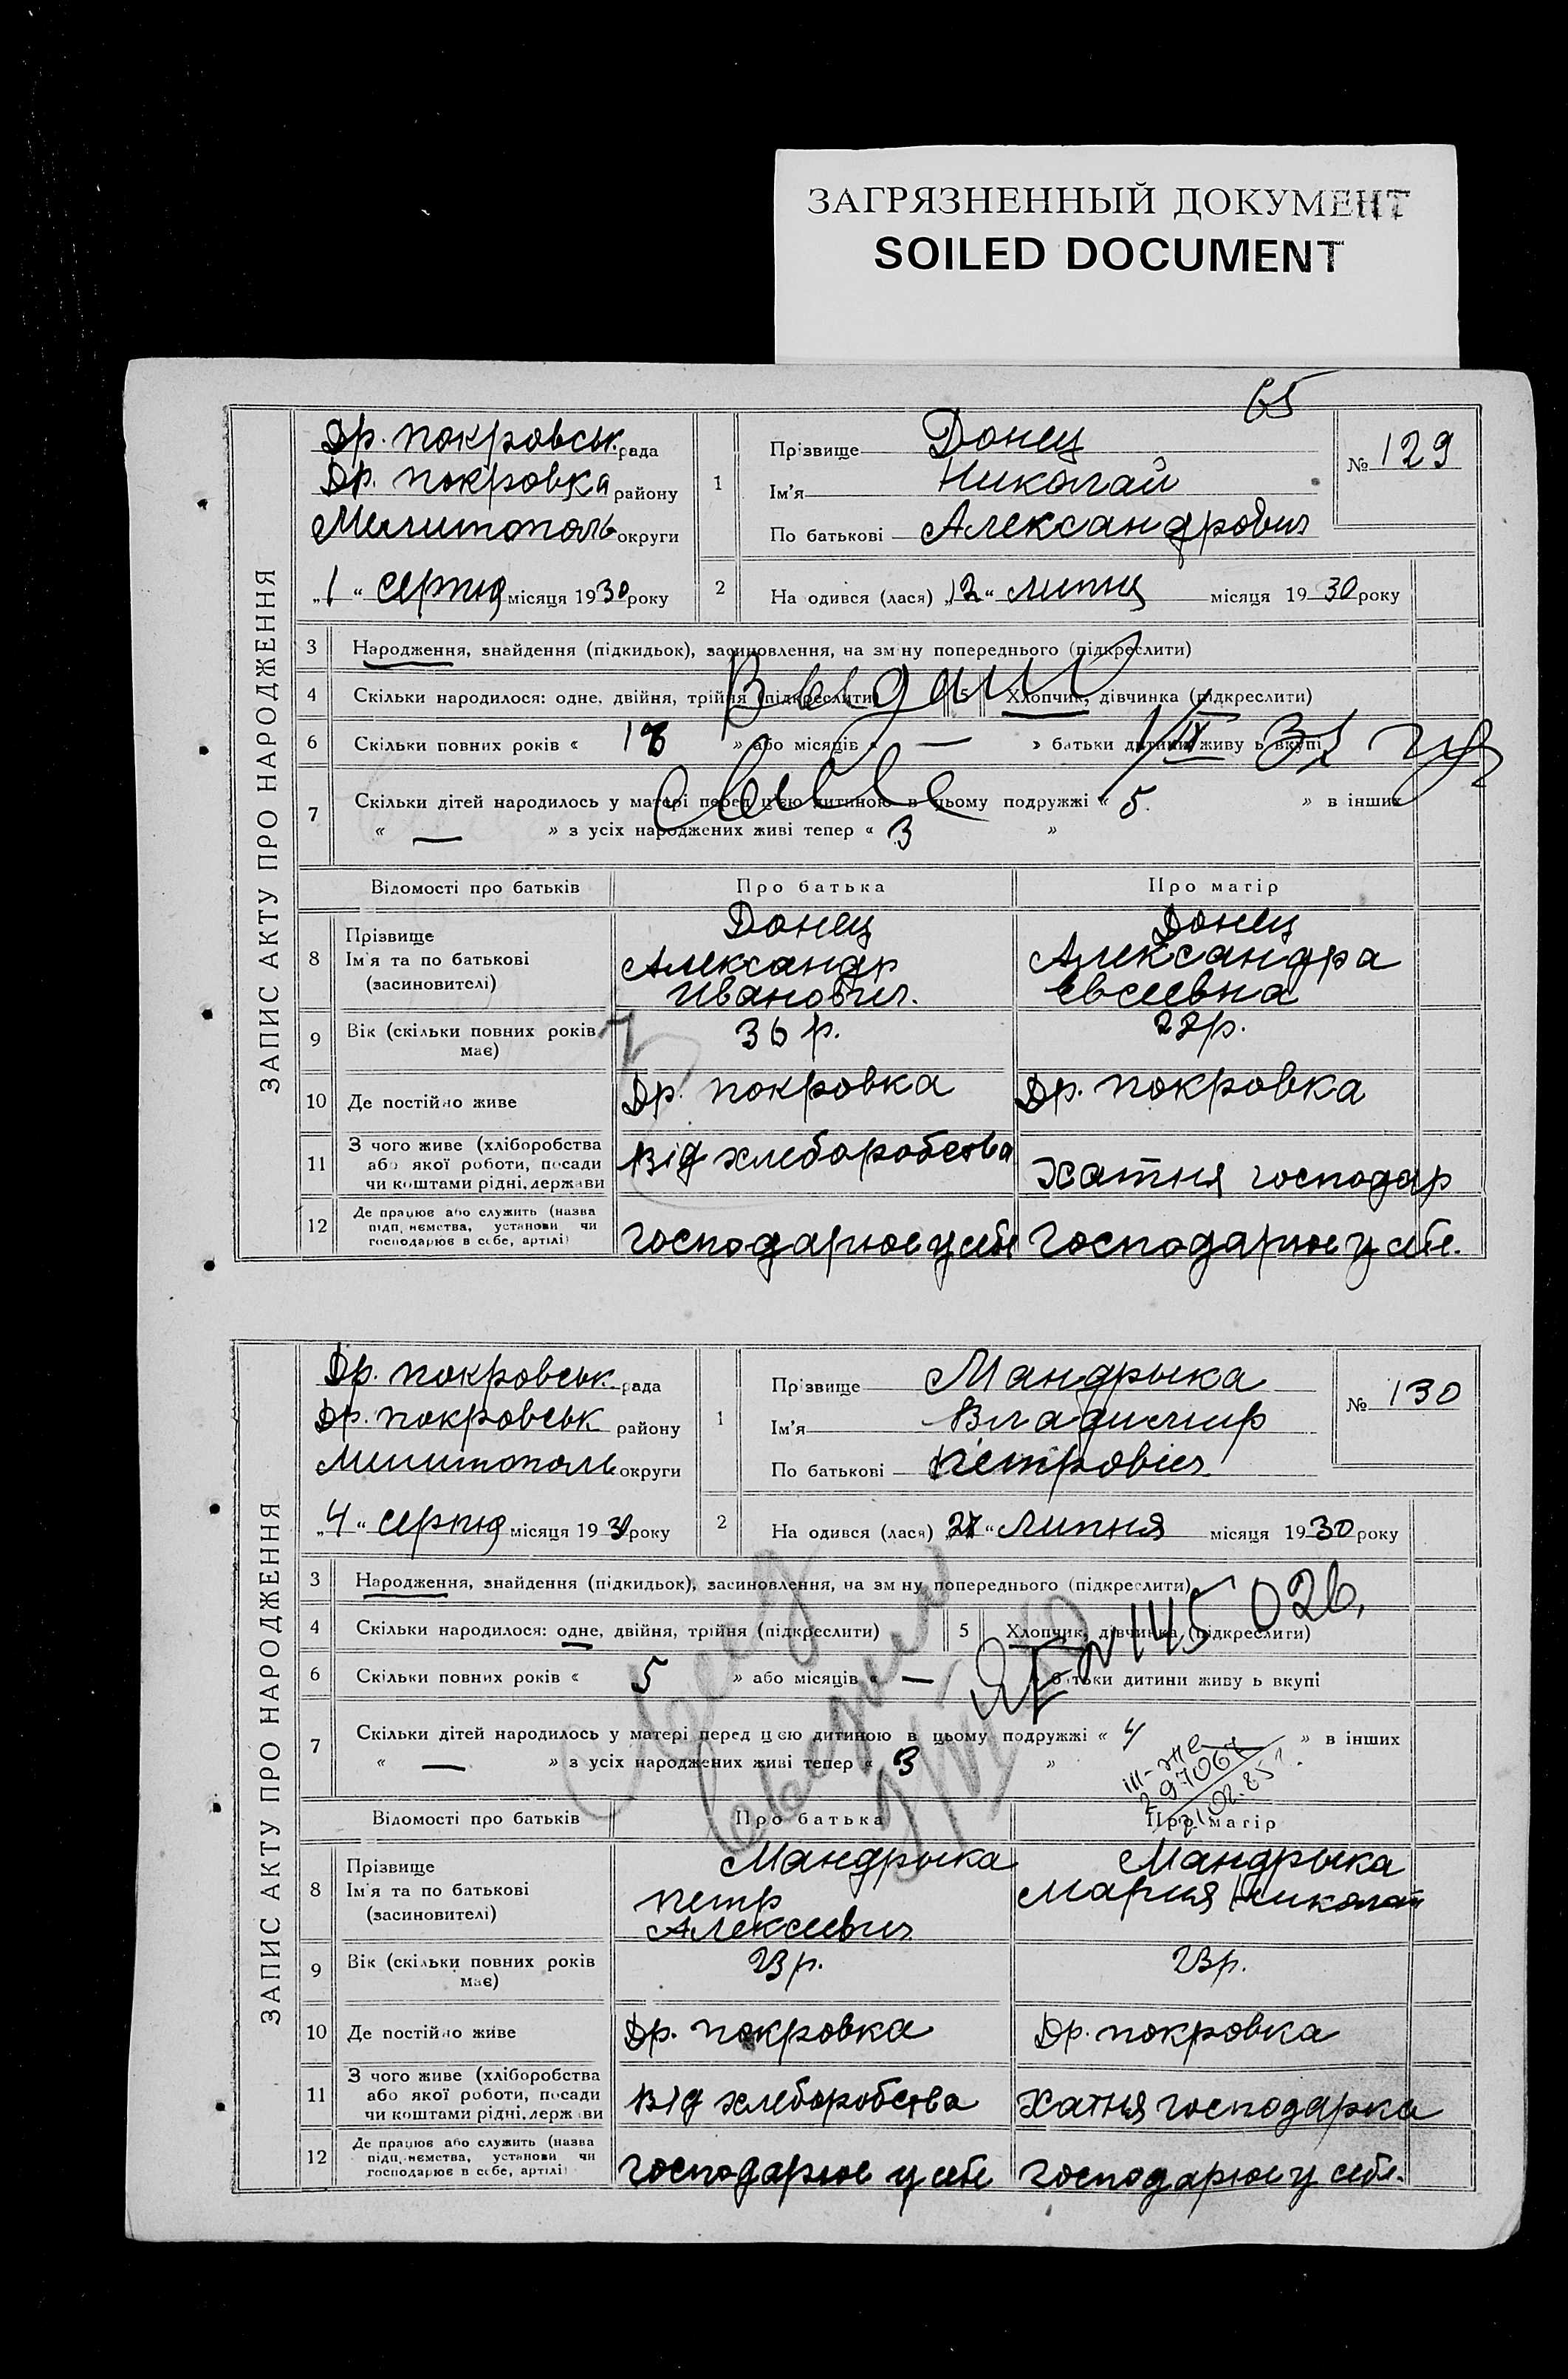 ЗАГРЯЗНЕННЫЙ ДОКУМЕНТ
SOILED DOCUMENT
65
ЗАПИС АКТУ ПРО НАРОДЖЕННЯ
Др. покровськ. рада
Др. покровка району
Мелитополь округи
„1“ серпня місяця 1930 року
1
Прізвище Донец
Ім'я Николай
По батькові Александрович
№ 129
2 На одився (лася) „12“ липня місяця 1930 року
3 Народження, знайдення (підкидьок), засиновлення, на зм ну попереднього (підкреслити)
4 Скільки народилося: одне, двійня, трійня (підкреслити) 5 Хлопчик, дівчинка (підкреслити)
6 Скільки повних років « 18 » або місяців « — » батьки дитини живу ь вкупі
7 Скільки дітей народилось у матері перед цією дитиною в цьому подружжі « 5. » в інших
« — » з усіх народжених живі тепер « 3 »
Відомості про батьків Про батька Про матір
8 Прізвище Ім'я та по батькові (засиновителі)
Донец Александр Иванович.
Донец Александра Евсеевна
9 Вік (скільки повних років має) 36 р. 22р.
10 Де постійно живе Др. покровка Др. покровка
11 З чого живе (хліборобства або якої роботи, посади чи коштами рідні, держави
Від хлеборобства Хатня господар
12 Де працює або служить (назва підп, ємства, установи чи господарює в себе, артілі)
господарює у себе господарює у себе.
ЗАПИС АКТУ ПРО НАРОДЖЕННЯ
Др. покровськ. рада
Др. покровськ району
Мелитополь округи
„4“ серпня місяця 1930 року
1
Прізвище Мандрыка
Ім'я Владимир
По батькові Петровіч
№ 130
2 На одився (лася) „ “ липня місяця 1930 року
3 Народження, знайдення (підкидьок), засиновлення, на зм ну попереднього (підкреслити)
4 Скільки народилося: одне, двійня, трійня (підкреслити) 5 Хлопчик, дівчинка (підкреслити)
№ 145026.
6 Скільки повних років « 5 » або місяців « — батьки дитини живу ь вкупі
7 Скільки дітей народилось у матері перед цією дитиною в цьому подружжі « 4 » в інших
« — » з усіх народжених живі тепер « 3 »
III-ЖС
297067
Відомості про батьків Про батька Про матір
8 Прізвище Ім'я та по батькові (засиновителі)
Мандрыка петр Алексеевич
Мандрыка Мария Николай
9 Вік (скільки повних років має) 23р. 23р.
10 Де постійно живе Др. покровка Др. покровка
11 З чого живе (хліборобства або якої роботи, посади чи коштами рідні, держ ви
Від хлеборобства Хатня господарка
12 Де працює або служить (назва підп, ємства, установи чи господарює в себе, артілі)
господарює у себе господарює у себе.